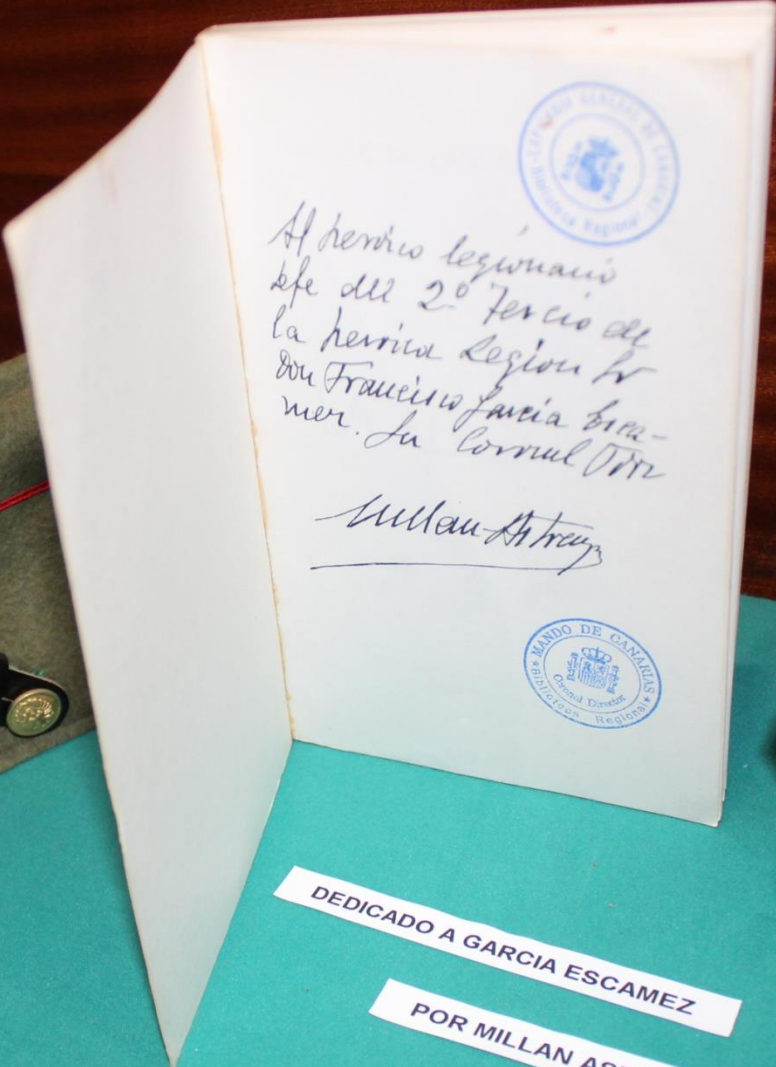 CAPITANIA GENERAL DE CANARIAS
Biblioteca Regional
Al heroico legionario
Jefe del 2º Tercio de
la heroica Legion Sr
Don Francisco Garcia Esca-
mez. Su Coronel
Millan-Astray
MANDO DE CANARIAS
Coronel Director
* Biblioteca Regional *
DEDICADO A GARCIA ESCAMEZ
POR MILLAN AS